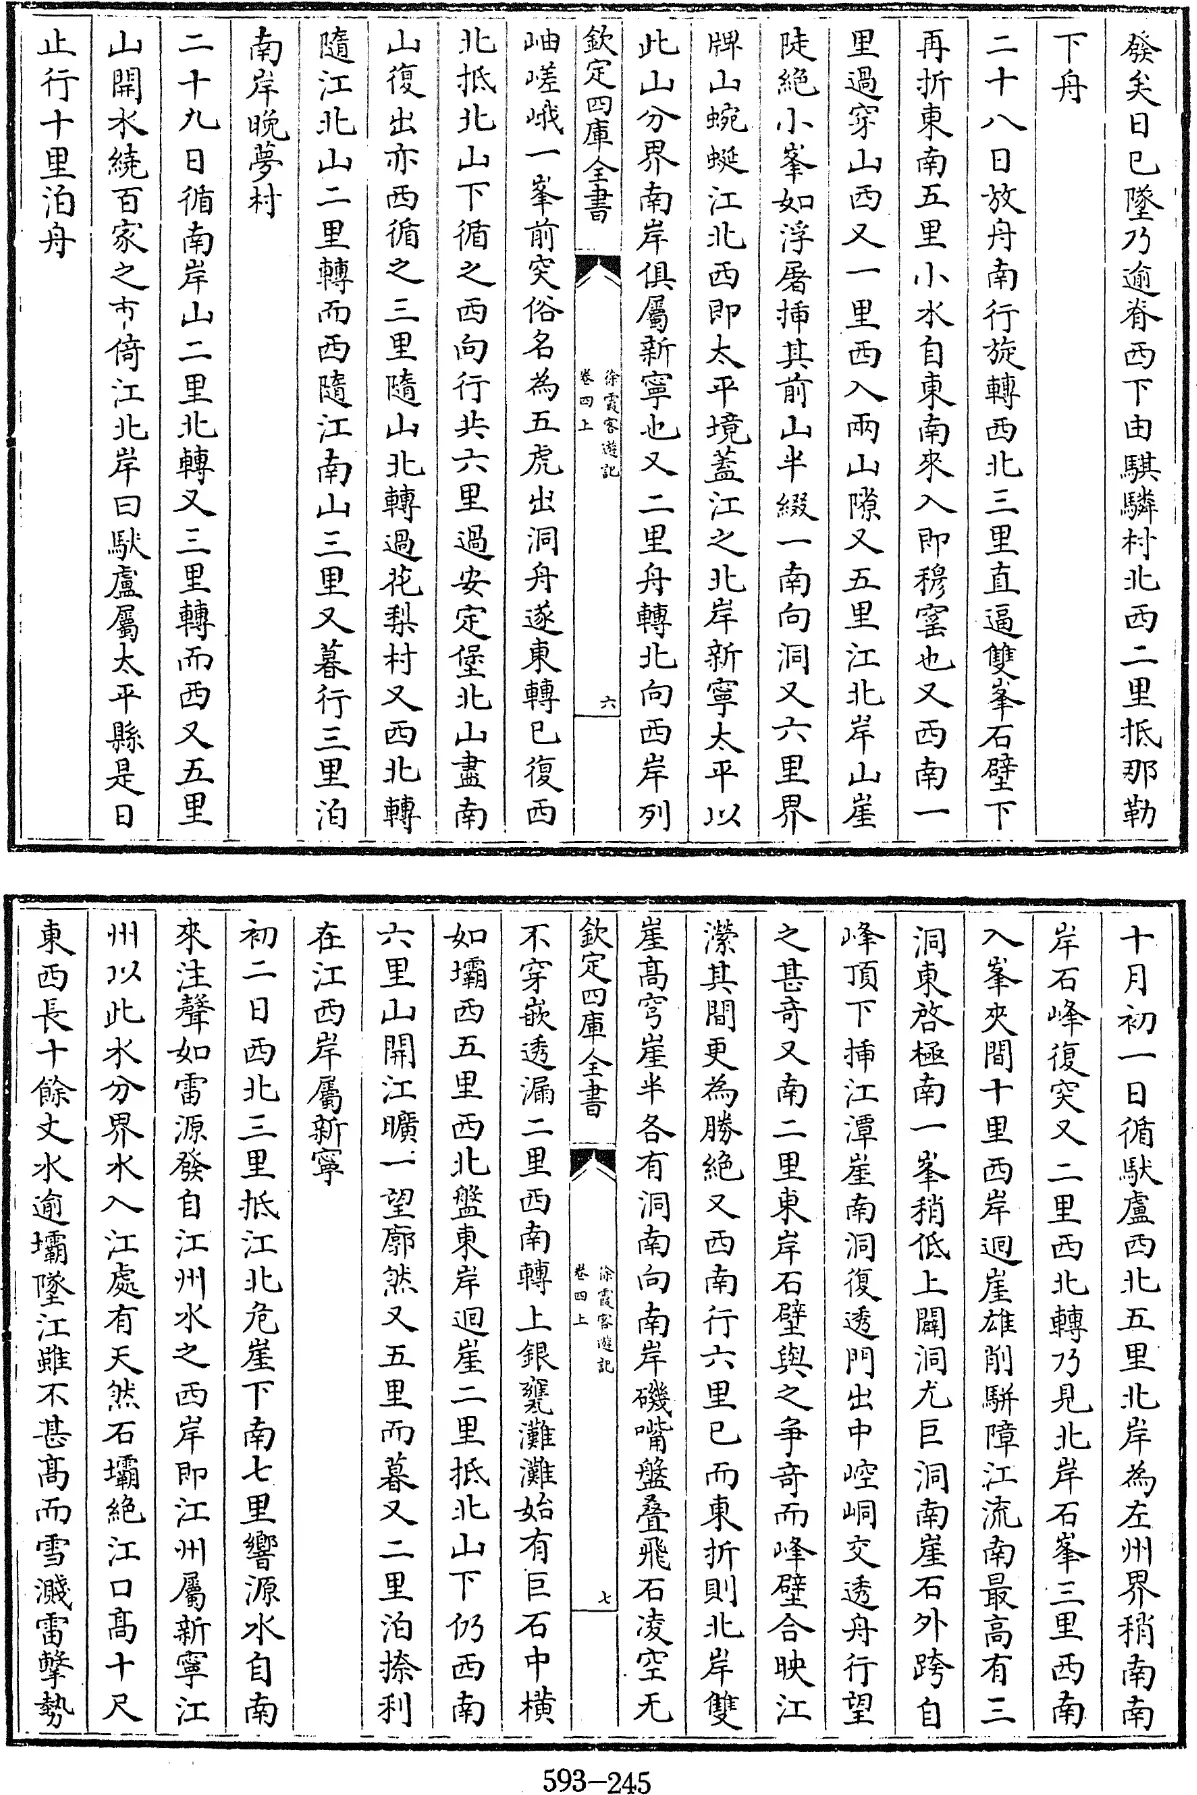 發矣日已墜乃逾脊西下由騏驎村北西二里抵那勒
下舟
二十八日放舟南行旋轉西北三里直逼雙峯石壁下
再折東南五里小水自東南來入即穆窰也又西南一
里過穿山西又一里西入兩山隙又五里江北岸山崖
陡絶小峯如浮屠揷其前山半綴一南向洞又六里界
牌山蜿蜒江北西即太平境蓋江之北岸新寧太平以
此山分界南岸俱屬新寧也又二里舟轉北向西岸列
欽定四庫全書
徐霞客遊記
卷四上
六
岫嵯峨一峯前突俗名為五虎出洞舟遂東轉已復西
北抵北山下循之西向行共六里過安定堡北山盡南
山復出亦西循之三里隨山北轉過花梨村又西北轉
隨江北山二里轉而西隨江南山三里又暮行三里泊
南岸晚夢村
二十九日循南岸山二里北轉又三里轉而西又五里
山開水繞百家之市倚江北岸曰馱盧屬太平縣是日
止行十里泊舟
十月初一日循馱盧西北五里北岸為左州界稍南南
岸石峰復突又二里西北轉乃見北岸石峯三里西南
入峯夾間十里西岸迴崖雄削駢障江流南最高有三
洞東啓極南一峯稍低上闢洞尤巨洞南崖石外跨自
峰頂下揷江潭崖南洞復透門出中崆峒交透舟行望
之甚奇又南二里東岸石壁與之争奇而峰壁合映江
瀠其間更為勝絶又西南行六里已而東折則北岸雙
崖高穹崖半各有洞南向南岸磯嘴盤叠飛石凌空无
欽定四庫全書
徐霞客遊記
卷四上
七
不穿嵌透漏二里西南轉上銀甕灘灘始有巨石中橫
如壩西五里西北盤東岸迴崖二里抵北山下仍西南
六里山開江曠一望廓然又五里而暮又二里泊捺利
在江西岸屬新寧
初二日西北三里抵江北危崖下南七里響源水自南
來注聲如雷源發自江州水之西岸即江州屬新寧江
州以此水分界水入江處有天然石壩絶江口高十尺
東西長十餘丈水逾壩墜江雖不甚高而雪濺雷擊勢
593-245